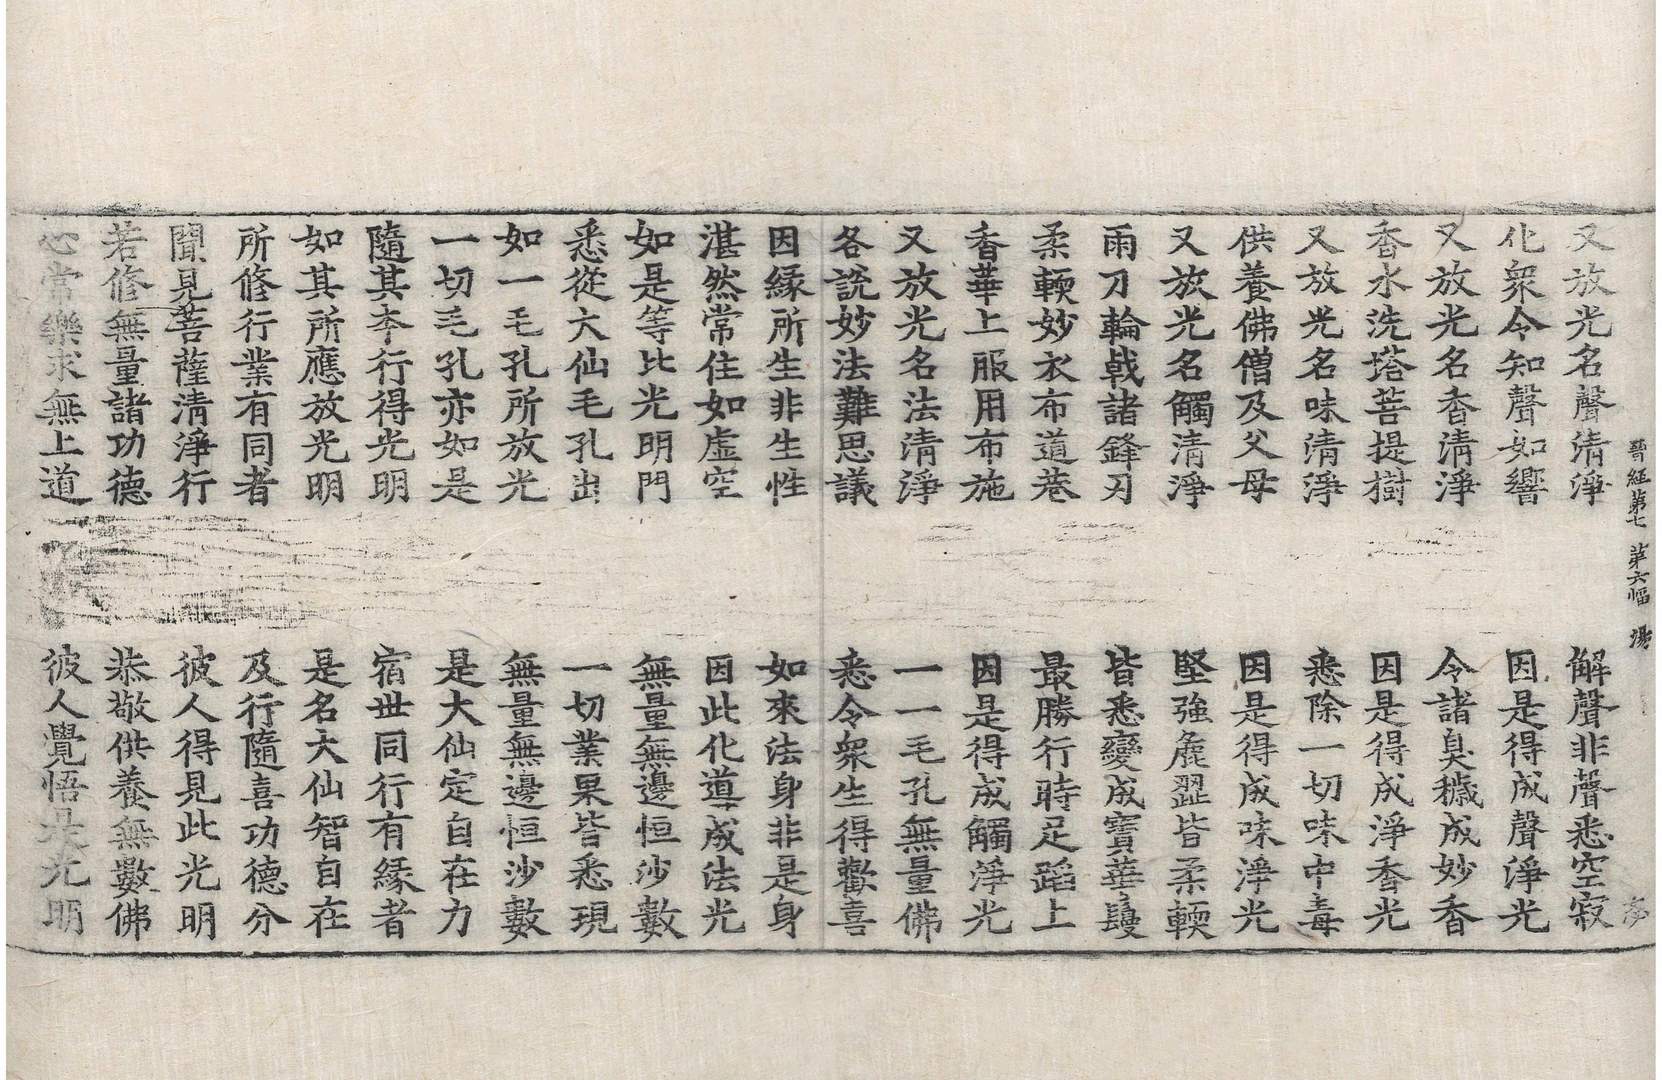 晉經第七 第六幅 湯
又放光名聲清淨 解聲非聲悉空寂
化衆令知聲如響 因是得成聲淨光
又放光名香清淨 令諸臭穢成妙香
香水洗塔菩提樹 因是得成淨香光
又放光名味清淨 悉除一切味中毒
供養佛僧及父母 因是得成味淨光
又放光名觸清淨 堅強麁澀皆柔輭
雨刀輪戟諸鋒刃 皆悉變成寶華鬘
柔輭妙衣布道巷 最勝行時足蹈上
香華上服用布施 因是得成觸淨光
又放光名法清淨 一一毛孔無量佛
各說妙法難思議 悉令衆生得歡喜
因緣所生非生性 如來法身非是身
湛然常住如虛空 因此化導成法光
如是等比光明門 無量無邊恒沙數
悉從大仙毛孔出 一切業果皆悉現
如一毛孔所放光 無量無邊恒沙數
一切毛孔亦如是 是大仙定自在力
隨其本行得光明 宿世同行有緣者
如其所應放光明 是名大仙智自在
所修行業有同者 及行隨喜功德分
聞見菩薩清淨行 彼人得見此光明
若修無量諸功德 恭敬供養無數佛
心常樂求無上道 彼人覺悟是光明